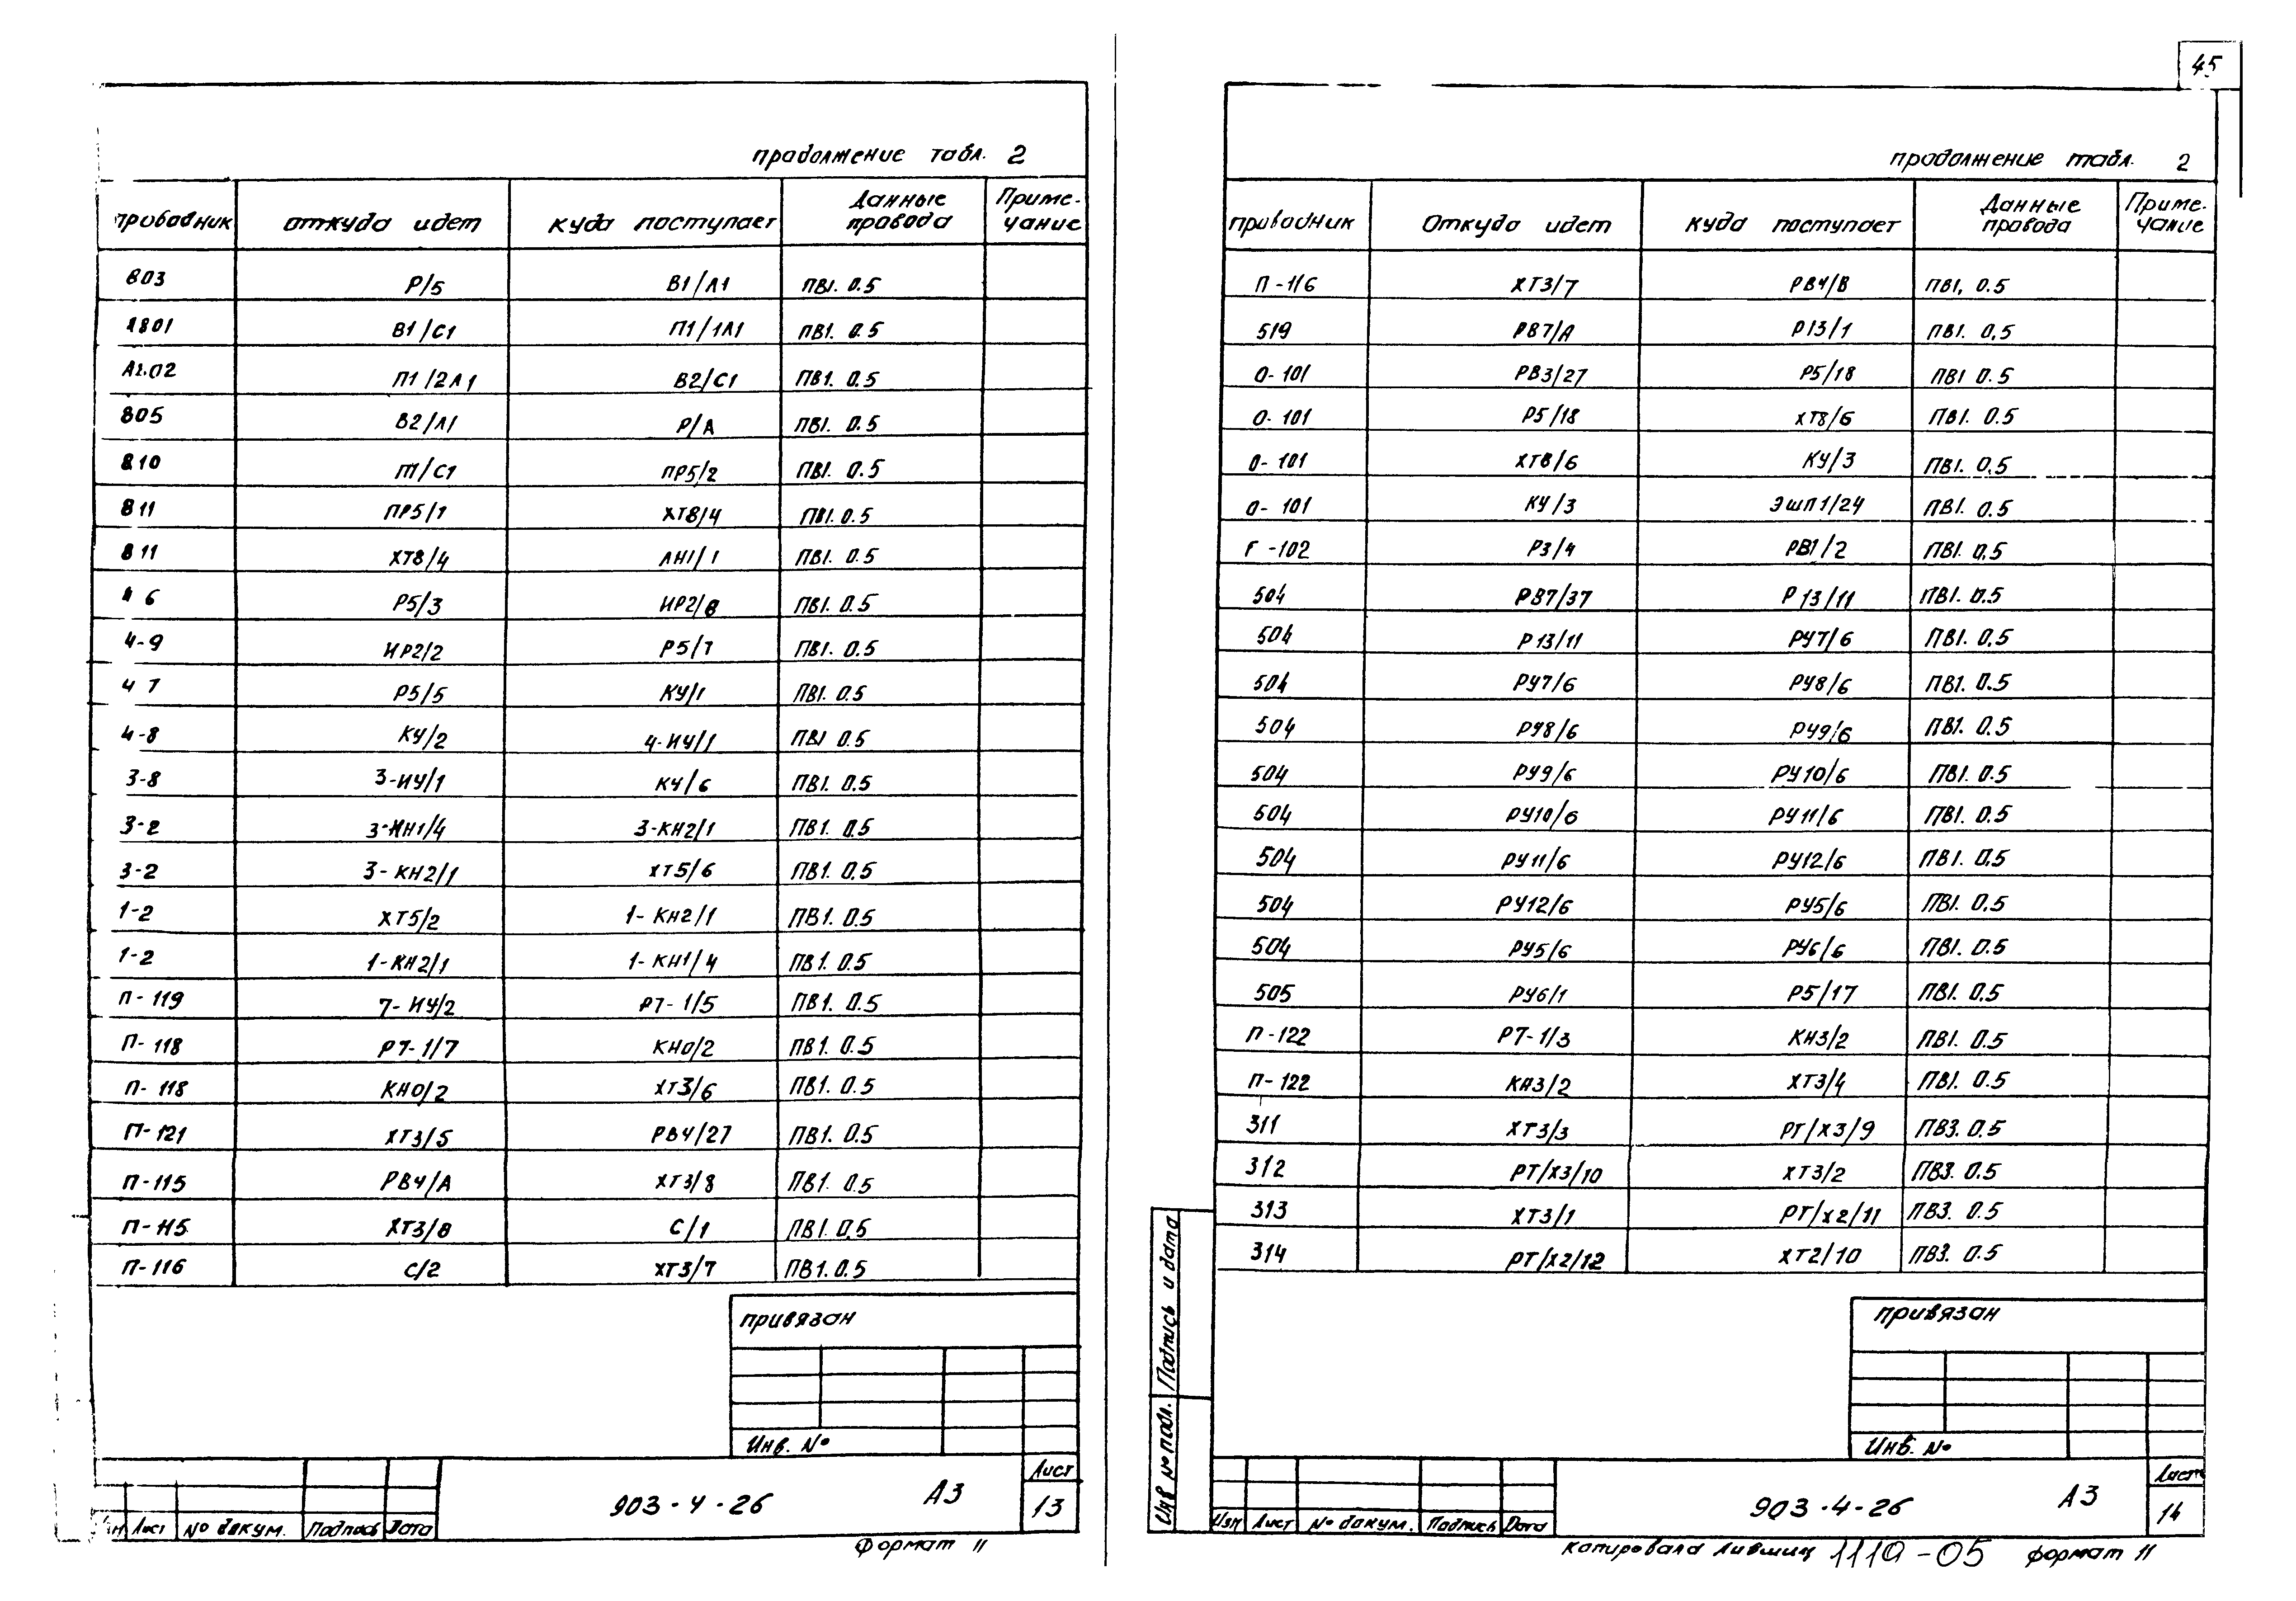 45
продолжение табл. 2
проводник откуда идет куда поступает Данные провода Приме- чание
803 Р/5 В1/Л1 ПВ1. 0.5
В1/С1 П1/1Л1 ПВ1. 0.5
П1/2Л1 В2/С1 ПВ1. 0.5
805 В2/Л1 Р/А ПВ1. 0.5
810 П1/С1 ПР5/2 ПВ1. 0.5
811 ПР5/1 ХТ8/4 ПВ1. 0.5
811 ХТ8/4 ЛН1/1 ПВ1. 0.5
Р5/3 ИР2/8 ПВ1. 0.5
4-9 ИР2/2 Р5/7 ПВ1. 0.5
4 7 Р5/5 КУ/1 ПВ1. 0.5
4-8 КУ/2 4-ИУ/1 ПВ1 0.5
3-8 3-ИУ/1 КУ/6 ПВ1. 0.5
3-2 3-КН1/4 3-КН2/1 ПВ1. 0.5
3-2 3-КН2/1 ХТ5/6 ПВ1. 0.5
1-2 ХТ5/2 1-КН2/1 ПВ1. 0.5
1-2 1-КН2/1 1-КН1/4 ПВ1. 0.5
П-119 7-ИУ/2 Р7-1/5 ПВ1. 0.5
П-118 Р7-1/7 КН0/2 ПВ1. 0.5
П-118 КН0/2 ХТ3/6 ПВ1. 0.5
П-121 ХТ3/5 РВ4/27 ПВ1. 0.5
П-115 РВ4/А ХТ3/8 ПВ1. 0.5
П-115 ХТ3/8 С/1 ПВ1. 0.5
П-116 С/2 ХТ3/7 ПВ1. 0.5
привязан
Инв. №
Лист
903-4-26 А3 13
Лист № докум. Подпись Дата
Формат 11
продолжение табл. 2
проводник Откуда идет куда поступает Данные провода Приме- чание
П-116 ХТ3/7 РВ4/В ПВ1, 0.5
519 РВ7/А Р13/1 ПВ1. 0,5
0-101 РВ3/27 Р5/18 ПВ1 0.5
0-101 Р5/18 ХТ8/6 ПВ1. 0.5
0-101 ХТ8/6 КУ/3 ПВ1. 0,5
0-101 КУ/3 ЭШП1/24 ПВ1. 0.5
Г-102 Р3/4 РВ1/2 ПВ1. 0,5
504 РВ7/37 Р13/11 ПВ1. 0.5
504 Р13/11 РУ7/6 ПВ1. 0.5
504 РУ7/6 РУ8/6 ПВ1. 0.5
504 РУ8/6 РУ9/6 ПВ1. 0.5
504 РУ9/6 РУ10/6 ПВ1. 0.5
504 РУ10/6 РУ11/6 ПВ1. 0.5
504 РУ11/6 РУ12/6 ПВ1. 0.5
504 РУ12/6 РУ5/6 ПВ1. 0.5
504 РУ5/6 РУ6/6 ПВ1. 0.5
505 РУ6/1 Р5/17 ПВ1. 0.5
П-122 Р7-1/3 КН3/2 ПВ1. 0.5
П-122 КН3/2 ХТ3/4 ПВ1. 0.5
311 ХТ3/3 РТ/Х3/9 ПВ3. 0.5
312 РТ/Х3/10 ХТ3/2 ПВ3. 0.5
313 ХТ3/1 РТ/Х2/11 ПВ3. 0.5
314 РТ/Х2/12 ХТ2/10 ПВ3. 0.5
привязан
Инв. №
Инв № подл. Подпись и дата
Лист
903-4-26 А3 14
Изм Лист № докум. Подпись Дата
Копировала Лившиц 1119-05 формат 11